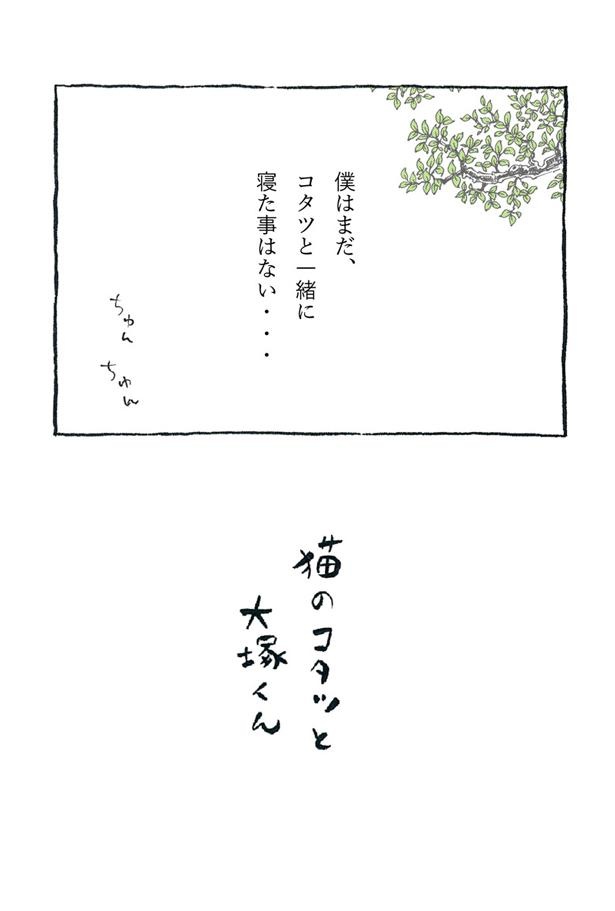 僕はまだ、
コタツと一緒に
寝た事はない・・・
ちゅん
ちゅん
猫のコタツと
大塚くん